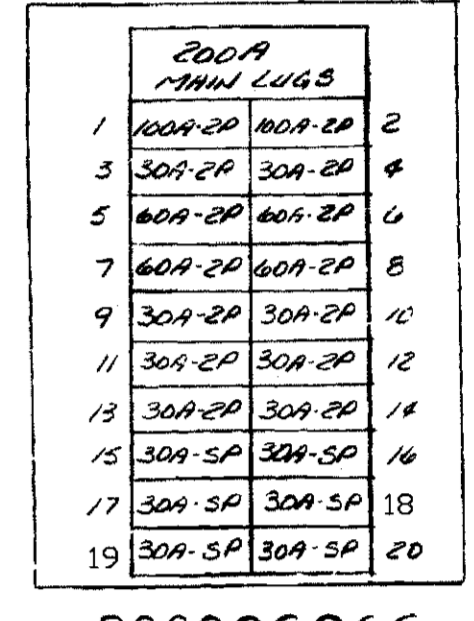 200A
MAIN LUGS
1 100A-2P 100A-2P 2
3 30A-2P 30A-2P 4
5 60A-2P 60A-2P 6
7 60A-2P 60A-2P 8
9 30A-2P 30A-2P 10
11 30A-2P 30A-2P 12
13 30A-2P 30A-2P 14
15 30A-SP 30A-SP 16
17 30A-SP 30A-SP 18
19 30A-SP 30A-SP 20